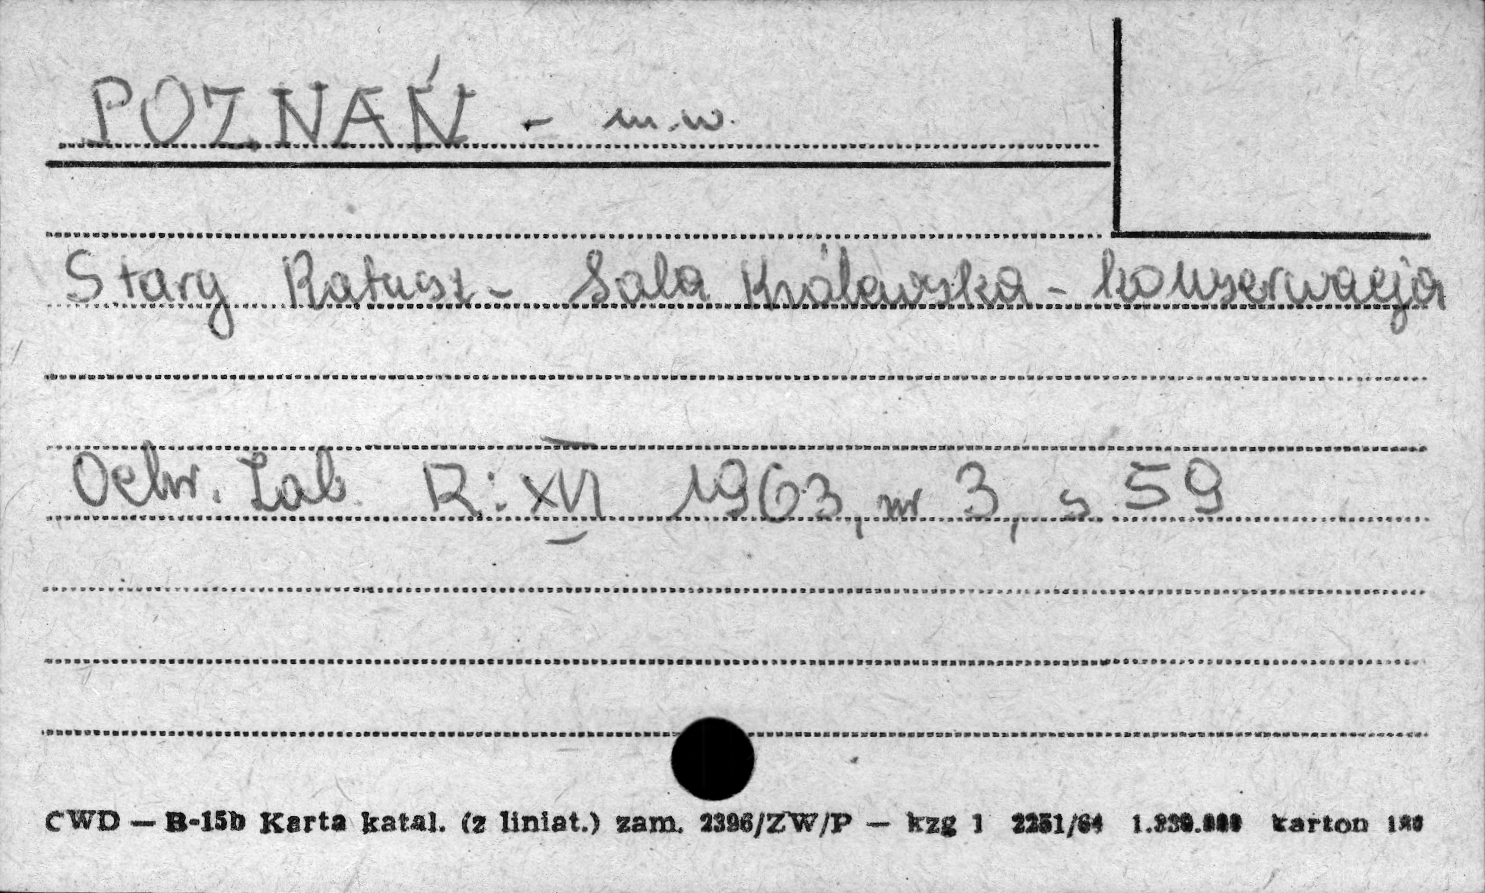 POZNAŃ - m.w.
Stary Ratusz - Sala Królewska - konserwacja
Ochr. Zab. R: XVI 1963, nr 3, s 59
CWD — B-15b Karta katal. (z liniat.) zam. 2396/ZW/P — kzg 1 2251/64 karton